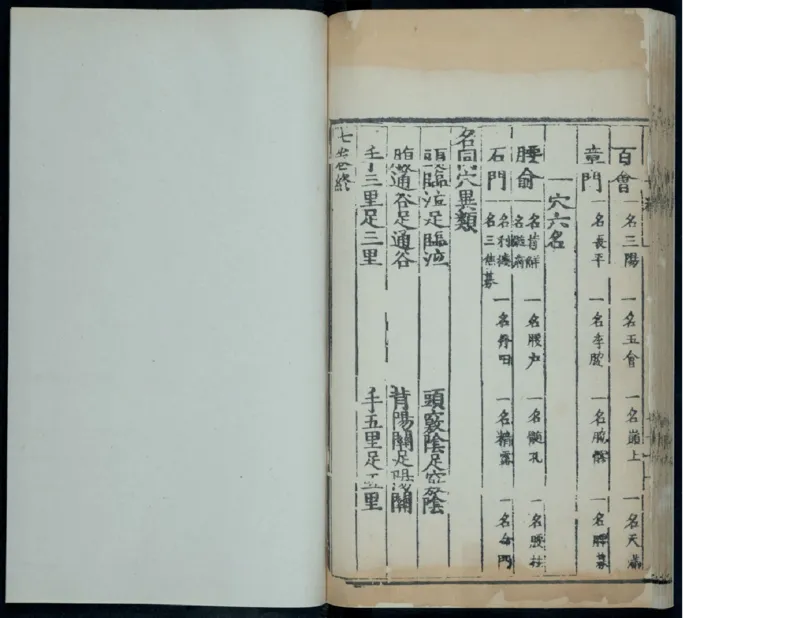 百會 一名三陽 一名五會 一名巔上 一名天滿
章門 一名長平 一名季脇 一名脇髎 一名脾募
一穴六名
腰俞 一名背解 一名髓府 一名腰户 一名髓孔 一名腰柱
石門 一名利機 一名三焦募 一名丹田 一名精露 一名命門
名同穴異類
頭臨泣足臨泣 頭竅陰足竅陰
腹通谷足通谷 背陽關足陽關
手三里足三里 手五里足五里
七卷終